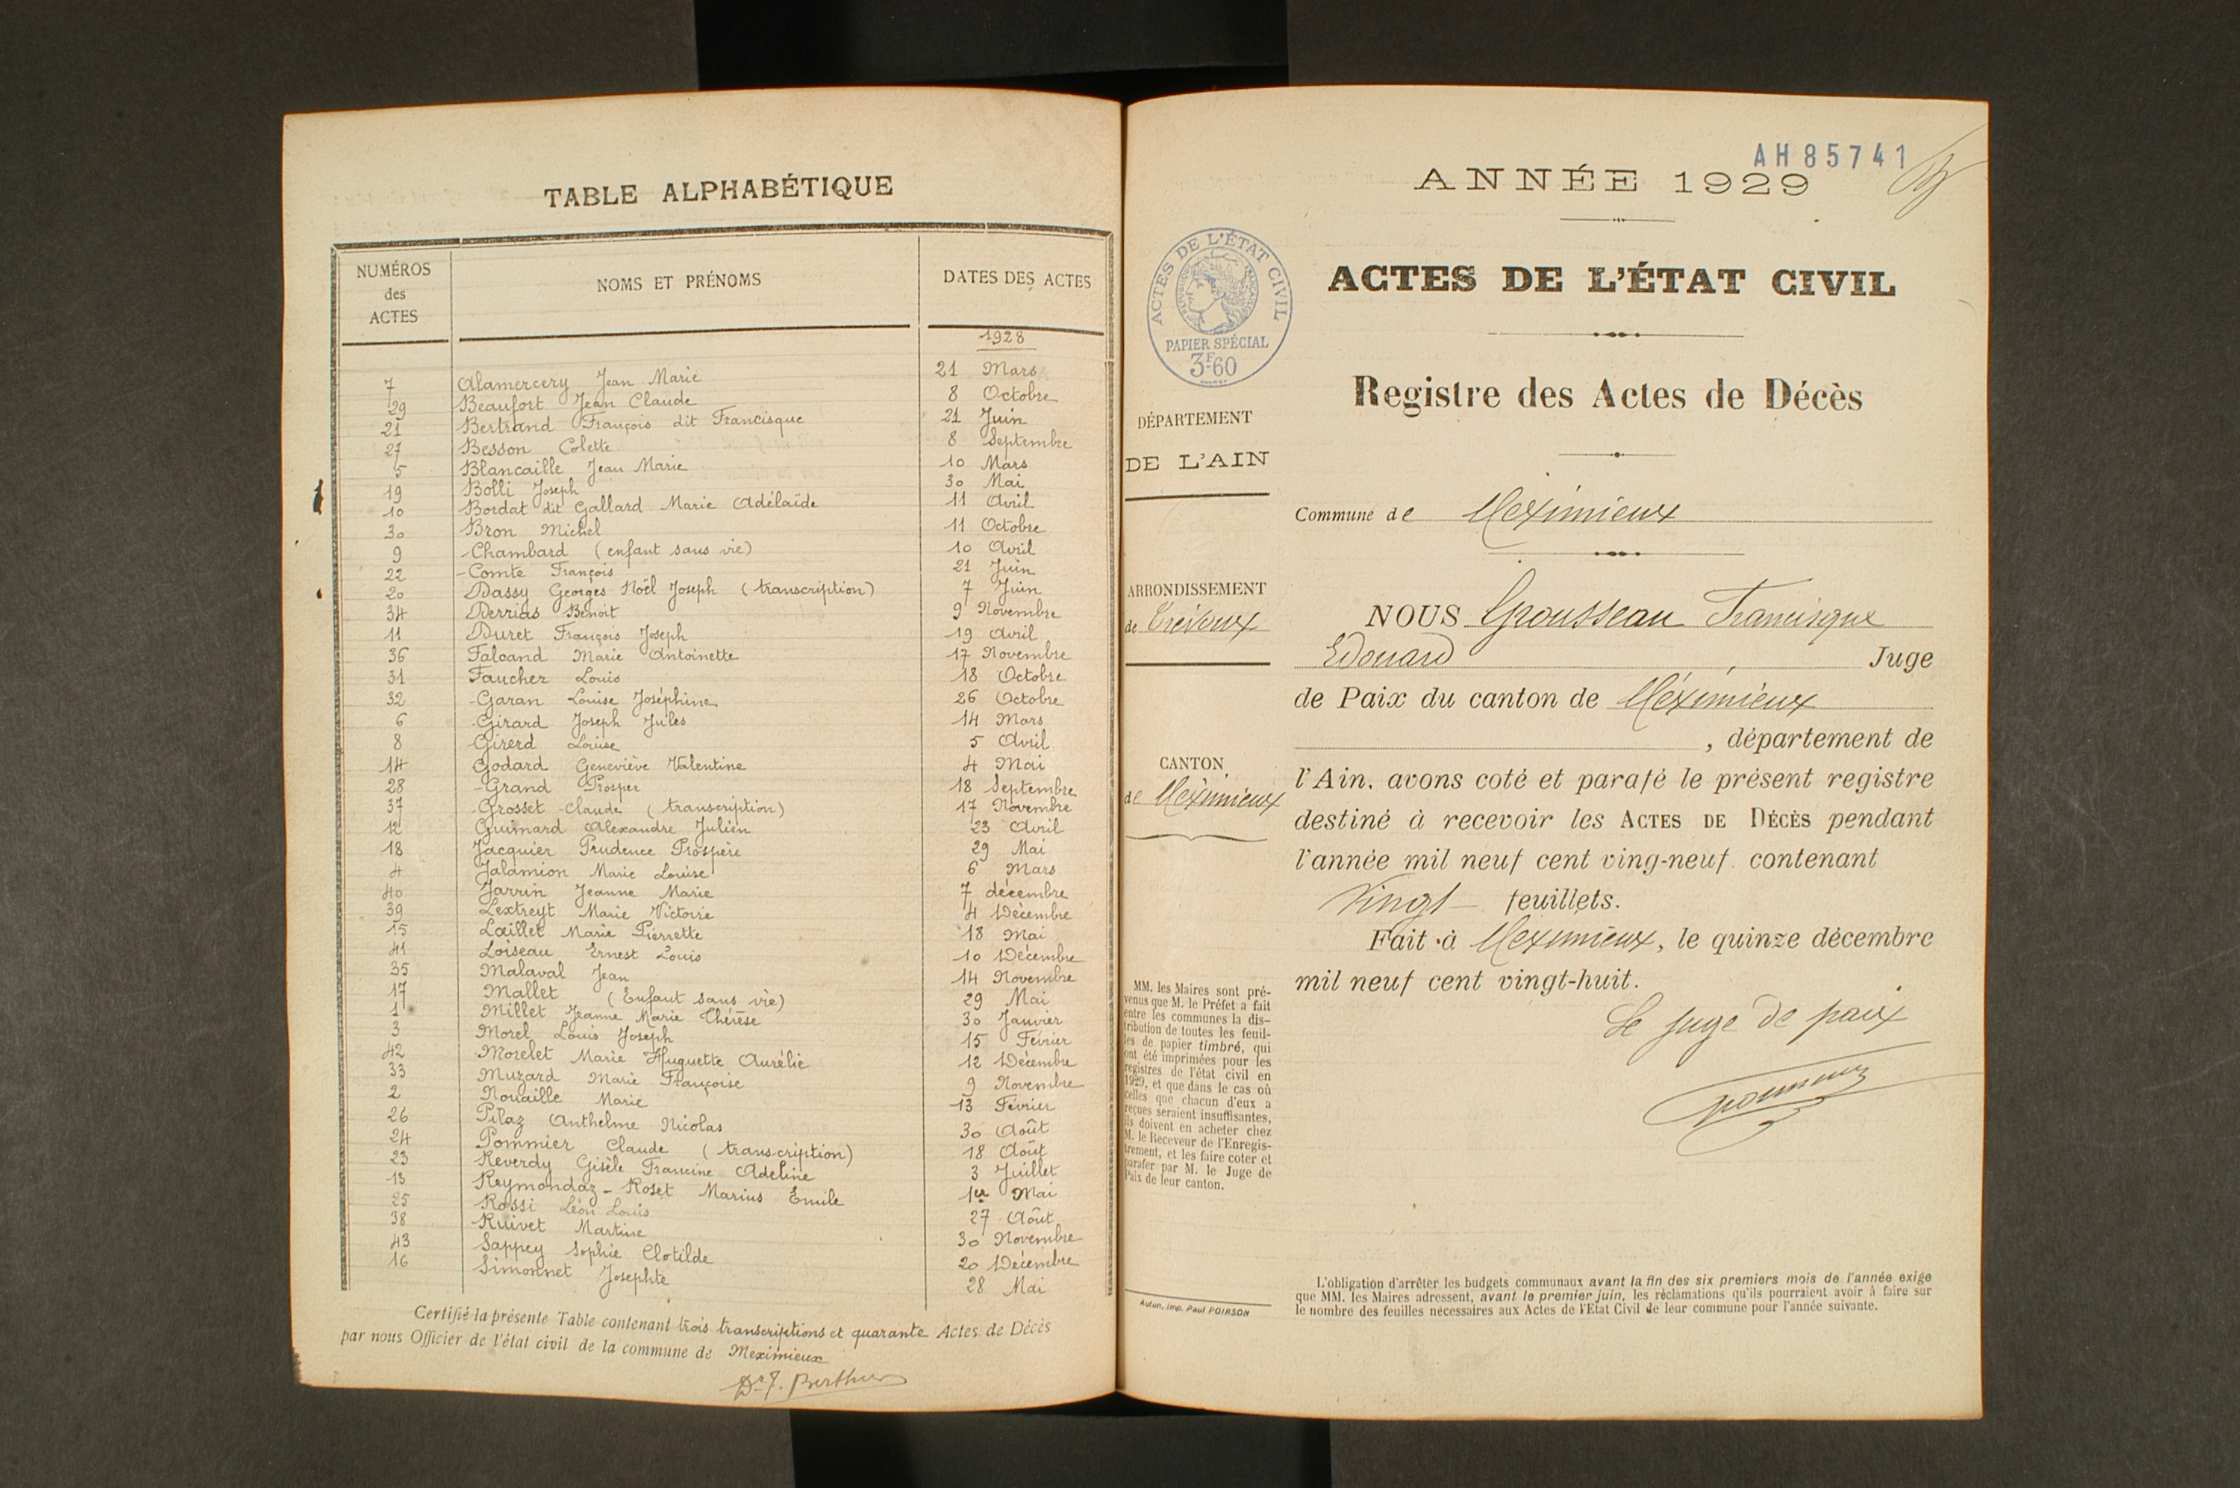 TABLE ALPHABÉTIQUE
NUMÉROS des ACTES NOMS ET PRÉNOMS DATES DES ACTES
1928
7 Alamercery Jean Marie 21 Mars
29 Beaufort Jean Claude 8 Octobre
21 Bertrand François dit Francisque 21 Juin
27 Besson Colette 8 Septembre
5 Blancaille Jean Marie 10 Mars
19 Bolli Joseph 30 Mai
10 Bordat dit Gallard Marie Adélaïde 11 Avril
30 Bron Michel 11 Octobre
9 Chambard (enfant sans vie) 10 Avril
22 Comte François 21 Juin
20 Dassy Georges Noël Joseph (transcription) 7 Juin
34 Derrias Benoit 9 Novembre
11 Duret François Joseph 19 Avril
36 Falcand Marie Antoinette 17 Novembre
31 Faucher Louis 18 Octobre
32 Garan Louise Joséphine 26 Octobre
6 Girard Joseph Jules 14 Mars
8 Girerd Louise 5 Avril
14 Godard Geneviève Valentine 4 Mai
28 Grand Prosper 18 Septembre
37 Grosset Claude (transcription) 17 Novembre
12 Guimard Alexandre Julien 23 Avril
18 Jacquier Prudence Prospère 29 Mai
4 Jalamion Marie Louise 6 Mars
40 Jarrin Jeanne Marie 7 décembre
39 Lextreyt Marie Victoire 4 Décembre
15 Lœillet Marie Pierrette 18 Mai
41 Loiseau Ernest Louis 10 Décembre
35 Malaval Jean 14 Novembre
17 Mallet (Enfant sans vie) 29 Mai
1 Millet Jeanne Marie Thérèse 30 Janvier
3 Morel Louis Joseph 15 Février
42 Morelet Marie Huguette Aurélie 12 Décembre
33 Muzard Marie Françoise 9 Novembre
2 Nouaille Marie 13 Février
26 Pilaz Anthelme Nicolas 30 Août
24 Pommier Claude (transcription) 18 Août
23 Reverdy Gisèle Francine Adeline 3 Juillet
13 Reymondaz-Roset Marius Emile 1er Mai
25 Rossi Léon Louis 27 Août
38 Ruivet Martine 30 Novembre
43 Sappey Sophie Clotilde 20 Décembre
16 Simonnet Josephte 28 Mai
Certifié la présente Table contenant trois transcriptions et quarante Actes de Décès
par nous Officier de l'état civil de la commune de Meximieux
Dr J. Berthier
AH 85741
ANNÉE 1929
ACTES DE L'ÉTAT CIVIL
PAPIER SPÉCIAL
3F60
ACTES DE L'ÉTAT CIVIL
Registre des Actes de Décès
DÉPARTEMENT
DE L'AIN
Commune de Meximieux
ARRONDISSEMENT
de Trévoux
CANTON
de Meximieux
NOUS Grousseau Francisque
Edouard Juge
de Paix du canton de Méximieux
, département de
l'Ain, avons coté et parafé le présent registre
destiné à recevoir les ACTES DE DÉCÈS pendant
l'année mil neuf cent ving-neuf contenant
Vingt feuillets.
Fait à Meximieux, le quinze décembre
mil neuf cent vingt-huit.
Le juge de paix
MM. les Maires sont pré-
venus que M. le Préfet a fait
entre les communes la dis-
tribution de toutes les feuil-
les de papier timbré, qui
ont été imprimées pour les
registres de l'état civil en
1929, et que dans le cas où
celles que chacun d'eux a
reçues seraient insuffisantes,
ils doivent en acheter chez
M. le Receveur de l'Enregis-
trement, et les faire coter et
parafer par M. le Juge de
Paix de leur canton.
Autun, imp. Paul POIRSON
L'obligation d'arrêter les budgets communaux avant la fin des six premiers mois de l'année exige
que MM. les Maires adressent, avant le premier juin, les réclamations qu'ils pourraient avoir à faire sur
le nombre des feuilles nécessaires aux Actes de l'Etat Civil de leur commune pour l'année suivante.